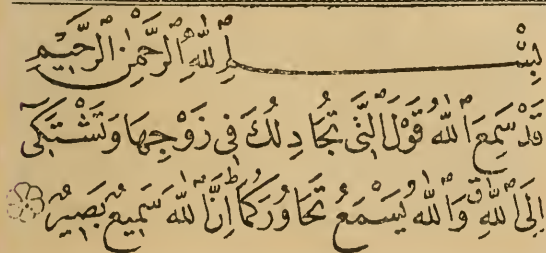 بِسْمِ اللّٰهِ الرَّحْمٰنِ الرَّحِيْمِ
قَدْ سَمِعَ اللّٰهُ قَوْلَ الَّتِىْ تُجَادِلُكَ فِىْ زَوْجِهَا وَتَشْتَكِىْٓ
اِلَى اللّٰهِ ۖق وَاللّٰهُ يَسْمَعُ تَحَاوُرَكُمَا ؕ اِنَّ اللّٰهَ سَمِيْعٌۢ بَصِيْرٌ